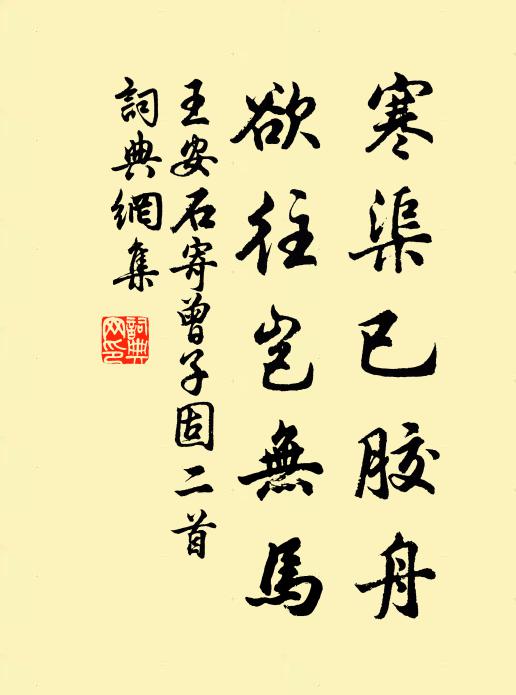 寒渠已胶舟
欲往岂無馬
王安石寄曾子固二首
詞典網集
詞典网印